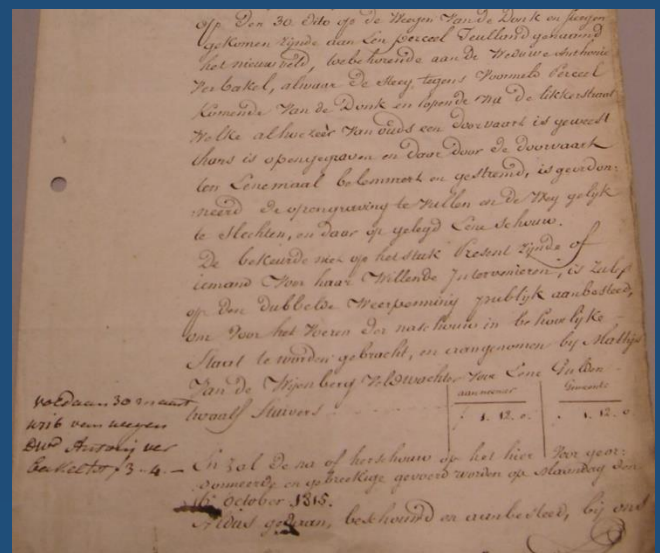 op Den 30 dito op de Weegen Van de Donk en
gekomen zijnde aan Een perceel Teulland genaamd
het nieuwveld, toebehorende aan de Weduwe Anthonie
Verbakel, alwaar De Weeg tegens Voormeld Perceel
komende Van de Donk en lopende na de likkerstraat
Welke alhoezeer Van ouds een doorvaart is geweest
thans is opengegraven en daar door de doorvaart
ten Eenemaal belemmert en gestremd, is geordon-
neerd de opengraving te Vullen en de Weg gelijk
te Slechten, en daar op gelegd Eene Schouw.
De bekeurde niet op het stuk Present zijnde of
iemand Voor haar Willende Intervenieren, is Zulx
op Den dubbelde Weerpenning publijk aanbesteed,
om Voor het Voeren Der naschouw in behoorlijke
Staat te worden gebracht, en aangenomen bij Mattijs
Van de Wijenberg Veldwachter Voor Eene Gulden
twaalf Stuivers
aannemer
Gemeente
1. 12. 0.
1. 12. 0
voldaan 30 maart
1816 van weegen
Antonij ver
bakel tot f 3-4.-
En zal De na of herschouw op het hier Voor geor-
donneerde en gebreekige gevoerd worden op Maandag den
16e October 1815.
Aldus gedaan, beschouwd en aanbesteed, bij ons